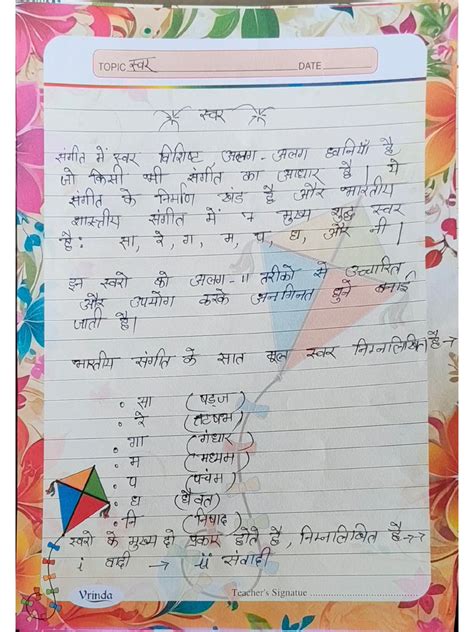 TOPIC स्वर DATE
स्वर
संगीत में स्वर विशिष्ट, अलग-अलग ध्वनियाँ है
जो किसी भी संगीत का आधार है। ये
संगीत के निर्माण खंड है और भारतीय
शास्त्रीय संगीत में 7 मुख्य शुद्ध स्वर
है: सा, रे, ग, म, प, ध, और नी।
इन स्वरो को अलग-11 तरीको से उच्चारित
और उपयोग करके अनगिनत धुने बनाई
जाती है।
भारतीय संगीत के सात मूल स्वर निम्नलिखित है→
• सा (षड्ज)
• रे (ऋषभ)
• गा (गंधार)
• म (मध्यम)
• प (पंचम)
• ध (धैवत)
• नि (निषाद)
स्वरो के मुख्य दो प्रकार होते है, निम्नलिखित है→
i वादी → ii संवादी
Vrinda Teacher's Signatue